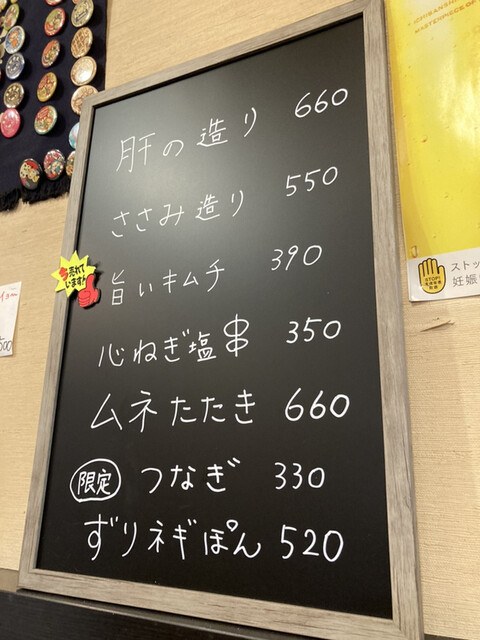 肝の造り 660
ささみ造り 550
今売れて
います!
旨いキムチ 390
心ねぎ塩串 350
ムネたたき 660
限定 つなぎ 330
ずりネギぽん 520
STOP!
ストッ
妊娠